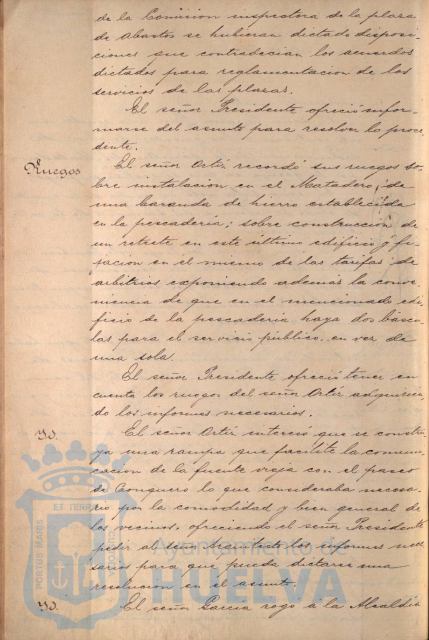 de la Comision inspectora de la plaza
de Abastos se hubieran dictado disposi-
ciones que contradecian los acuerdos
dictados para reglamentacion de los
servicios de las plazas.
El señor Presidente ofreció infor-
marse del asunto para resolver lo proce-
dente.
Ruegos
El señor Ortíz recordó sus ruegos so-
bre instalacion en el Matadero, de
una baranda de hierro establecida
en la pescaderia; sobre construccion de
un retrete en este último edificio y fi-
jacion en el mismo de las tarifas de
arbitrios exponiendo además la conve-
niencia de que en el mencionado edi-
ficio de la pescaderia haya dos báscu-
las para el servicio público, en vez de
una sola.
El señor Presidente ofreció tener en
cuenta los ruegos del señor Ortíz adquirien-
do los informes necesarios.
Yd.
El señor Ortíz interesó que se constru-
ya una rampa que facilite la comuni-
cacion de la fuente vieja con el paseo
de Conquero lo que consideraba necesa-
rio por la comodidad y bien general de
los vecinos, ofreciendo el señor Presidente
pedir al señor Arquitecto los informes nece-
sarios para que pueda dictarse una
resolucion en el asunto.
Yd.
El señor Garcia rogó á la Alcaldia
PORTUS MARIS
ET TERRÆ
Ayuntamiento de
HUELVA